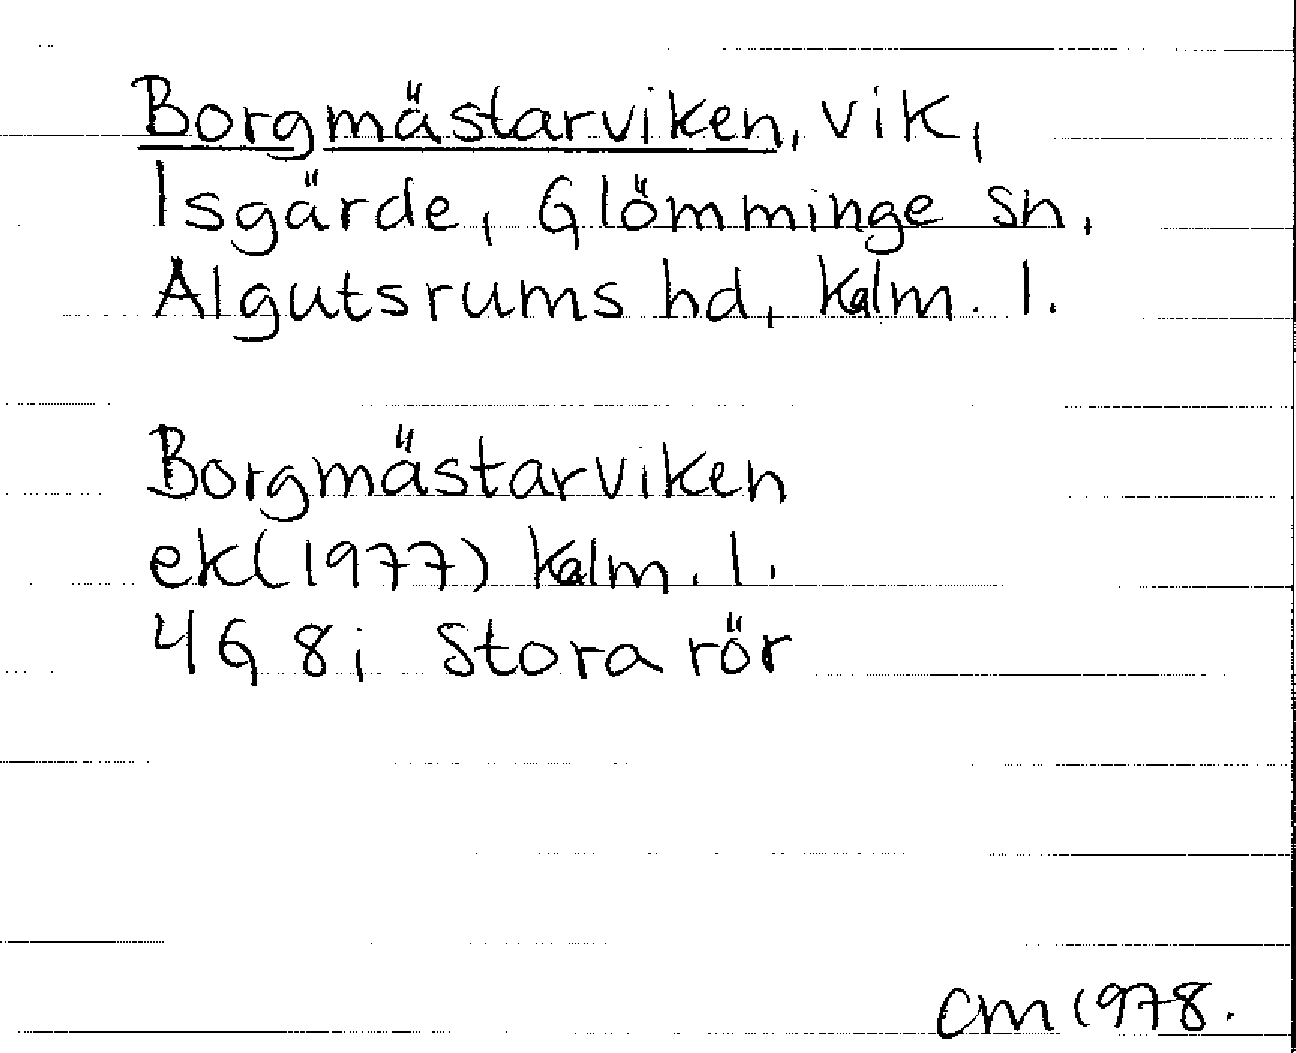 Borgmästarviken, vik,
Isgärde, Glömminge sn,
Algutsrums hd, Kalm. l.
Borgmästarviken
ek(1977) Kalm. l.
4G 8i Stora rör
CM 1978.